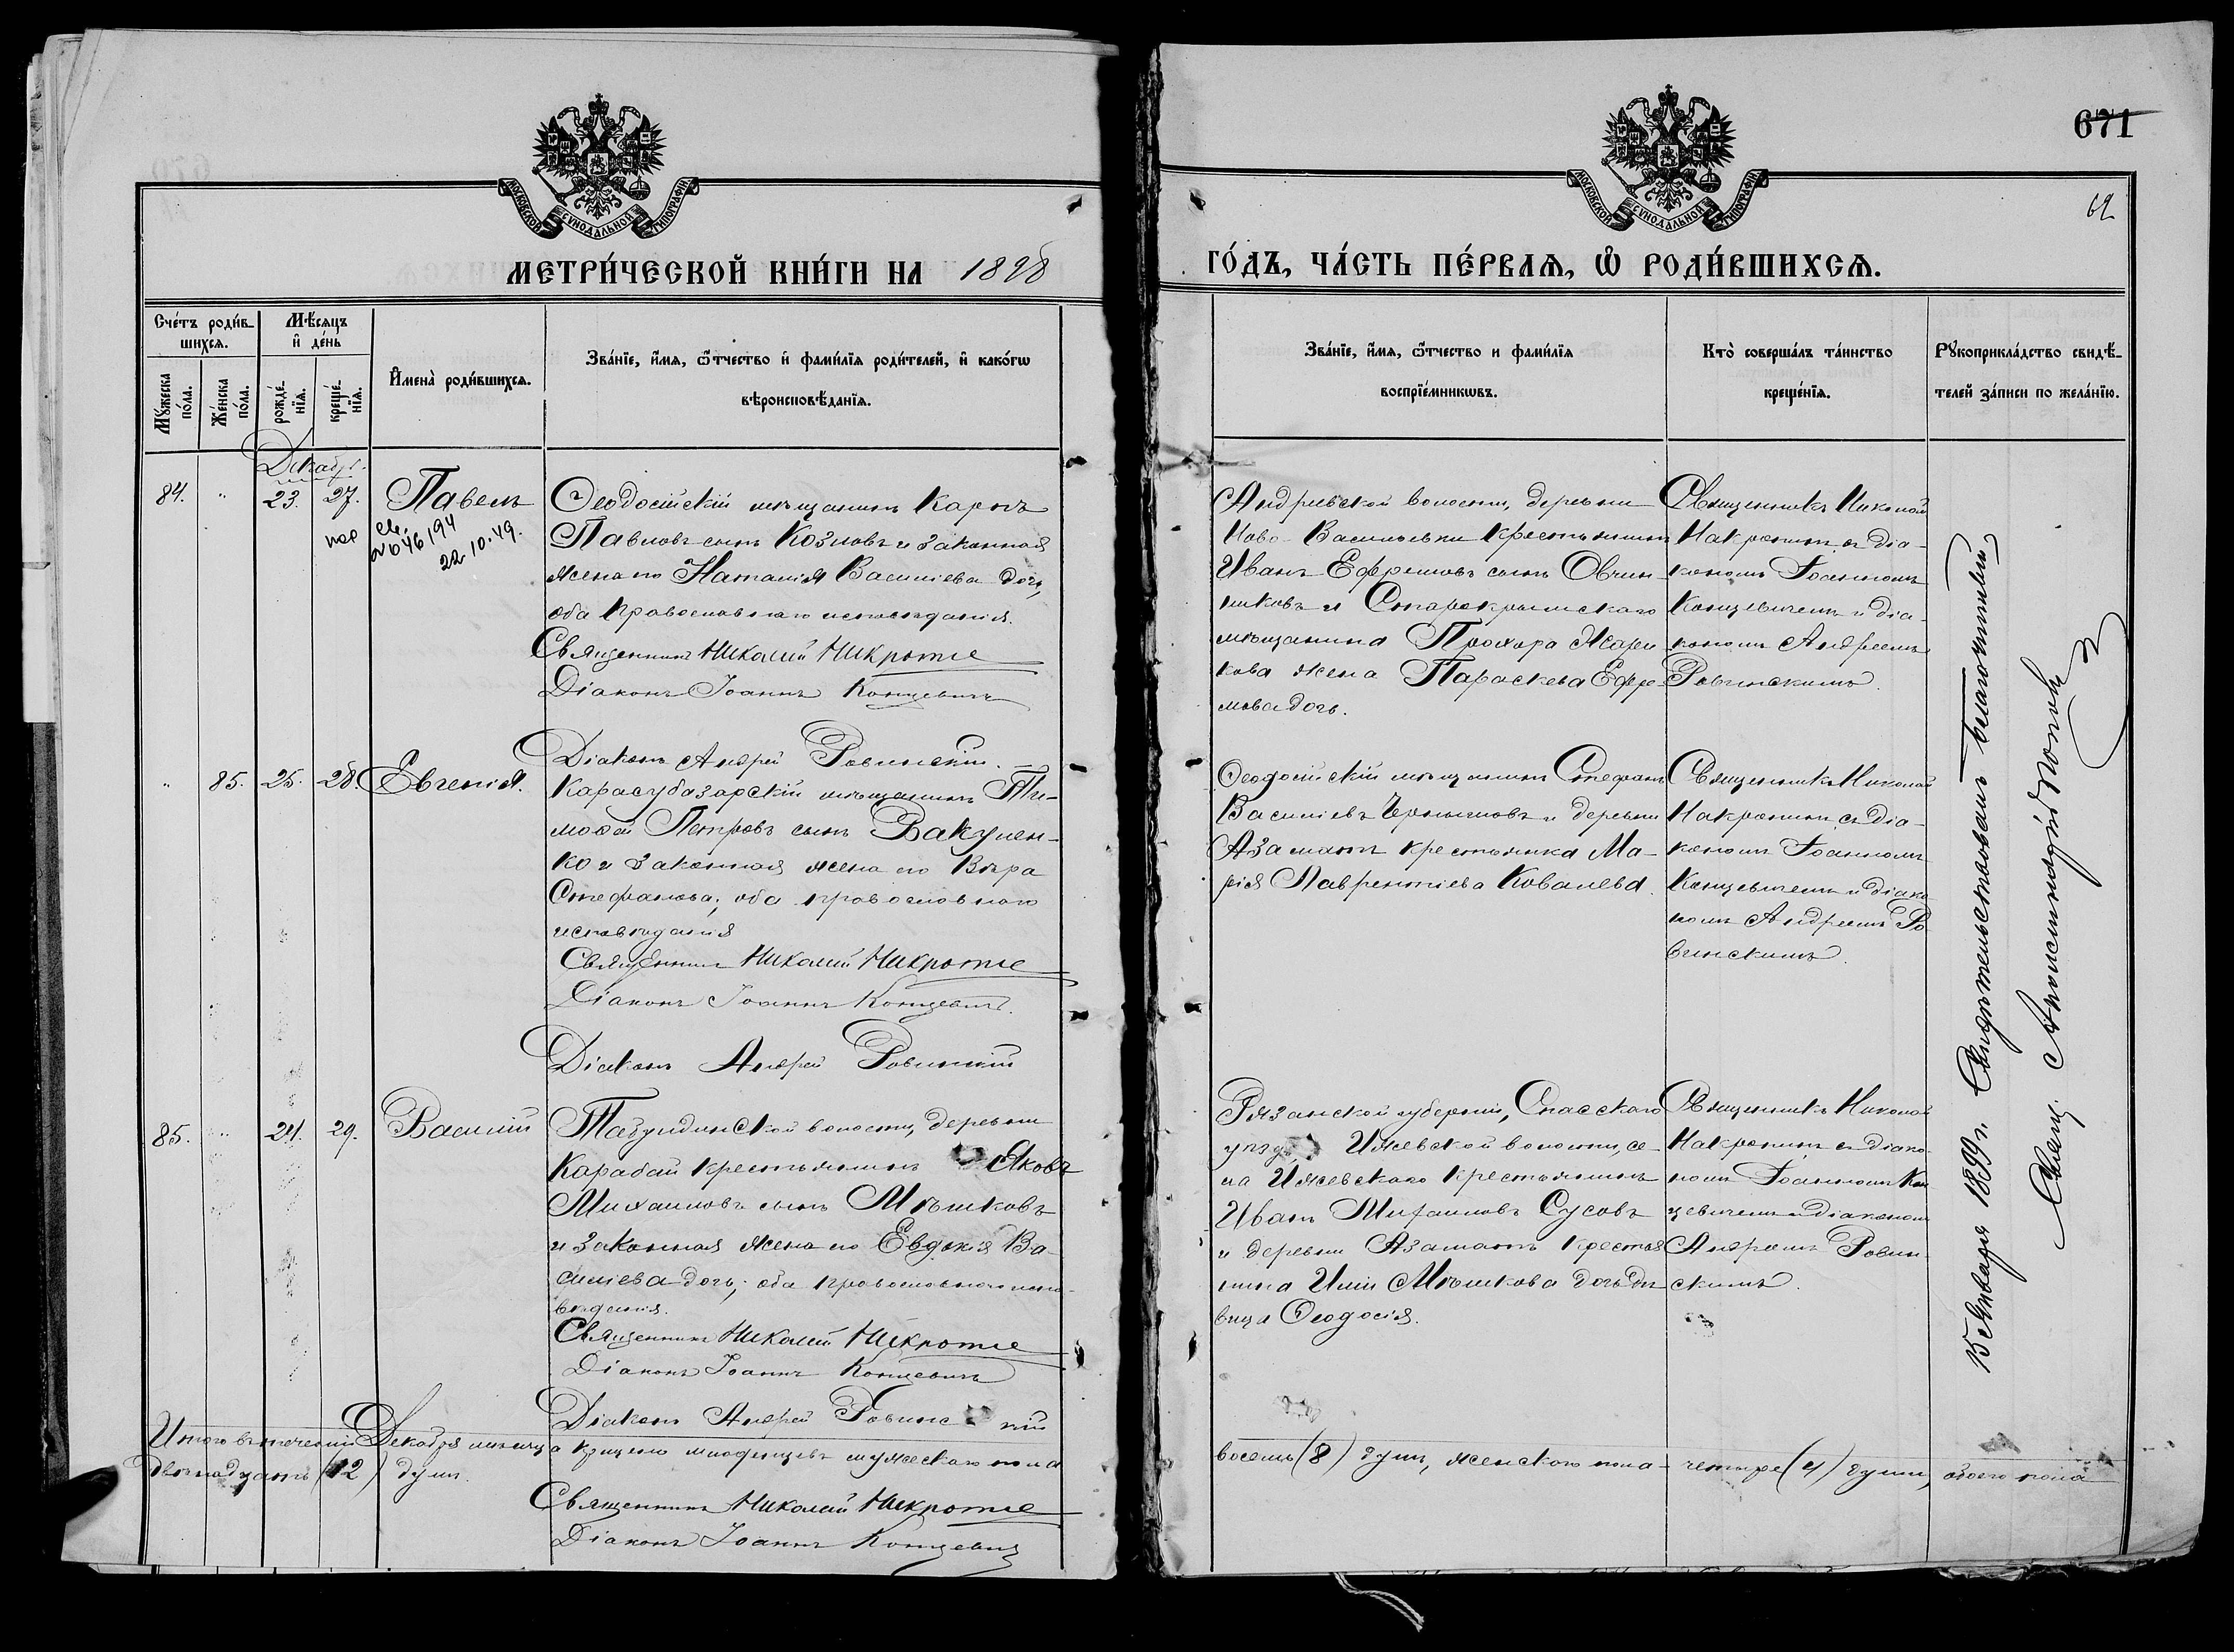 671
62
МОСКОВСКОЙ СѴНОДАЛЬНОЙ ТИПОГРАФІИ
МОСКОВСКОЙ СѴНОДАЛЬНОЙ ТИПОГРАФІИ
МЕТРИ́ЧЕСКОЙ КНИ́ГИ НА 1898
ГО́ДЪ, ЧА́СТЬ ПЕ́РВАЯ, Ѡ РОДИ́ВШИХСЯ.
Сче́тъ роди́в-
шихся.
Мꙋ́жеска по́ла.
Же́нска по́ла.
Мѣ́сяцъ
и҆ де́нь
рожде́-
нїя.
креще́-
нїя.
И҆мена̀ роди́вшихся.
Зва́нїе, и҆́мя, ѻ҆́тчество и҆ фами́лїя роди́телей, и҆ како́гѡ
вѣроисповѣ́данїя.
Зва́нїе, и҆́мя, ѻ҆́тчество и фами́лїя
воспрїе́мникѡвъ.
Кто̀ соверша́лъ та́инство
креще́нїя.
Рꙋкоприкла́дство свидѣ́-
телей за́писи по жела́нїю.
Декабр.
84. " 23. 27. Павелъ
св.
№ 46194
22.10.49.
Ѳеодосійскій мѣщанинъ Карпъ
Павловъ сынъ Козловъ и законная
жена его Наталія Василіева дочь,
оба православнаго исповѣданія.
Священникъ Николай Накропинъ
Діаконъ Іоаннъ Концевичъ
Діаконъ Андрей Ровинскій.
Андреевской волости, деревни
Ново-Васильевки крестьянинъ
Иванъ Ефремовъ сынъ Овчин-
никовъ и Старокрымскаго
мѣщанина Прохора Жари
кова жена Параскева Ефре-
мова дочь.
Священникъ Николай
Накропинъ съ діа-
кономъ Іоанномъ
Концевичемъ и діа-
кономъ Андреемъ
Ровинскимъ.
" 85. 25. 28. Евгенія.
Карасубазарскій мѣщанинъ Ти-
моѳей Петровъ сынъ Вакулен-
ко и законная жена его Вѣра
Стефанова; оба православнаго
исповѣданія
Священникъ Николай Накропинъ
Діаконъ Іоаннъ Концевичъ.
Діаконъ Андрей Ровинскій
Ѳеодосійскій мѣщанинъ Стефанъ
Василіевъ и деревни
Азаматъ крестьянка Ма-
рія Лаврентіева Ковалева.
Священникъ Николай
Накропинъ съ діа-
кономъ Іоанномъ
Концевичемъ и діако-
номъ Андреемъ Ро-
винскимъ.
85. " 24. 29. Василій
Табулдинской волости, деревни
Карабай крестьянинъ Яковъ
Михаиловъ сынъ Мѣшковъ
и законная жена его Евдокія Ва-
силіева дочь; оба православнаго испо-
вѣданія.
Священникъ Николай Накропинъ
Діаконъ Іоаннъ Концевичъ
Діаконъ Андрей Ровинскій
Рязанской губерніи, Спасскаго
уѣзда, Ижевской волости, се-
ла Ижевскаго крестьянинъ
Иванъ Михаиловъ Сусовъ
и деревни Азаматъ крестья
нина Иліи Мѣшкова дочь дѣ
вица Ѳеодосія.
Священникъ Николай
Накропинъ съ діако-
номъ Іоанномъ Кон
цевичемъ и діакономъ
Андреемъ Ровин-
скимъ.
Итого въ теченіи Декабря мѣсяца крещено младенцевъ мужескаго пола восемь (8) душъ, женскаго пола четыре (4) души, обоего пола
двѣнадцать (12) душъ.
Священникъ Николай Накропинъ
Діаконъ Іоаннъ Концевичъ
15 Января 1899 г. Свидѣтельствовалъ Благочинный
Свящ. Поповъ